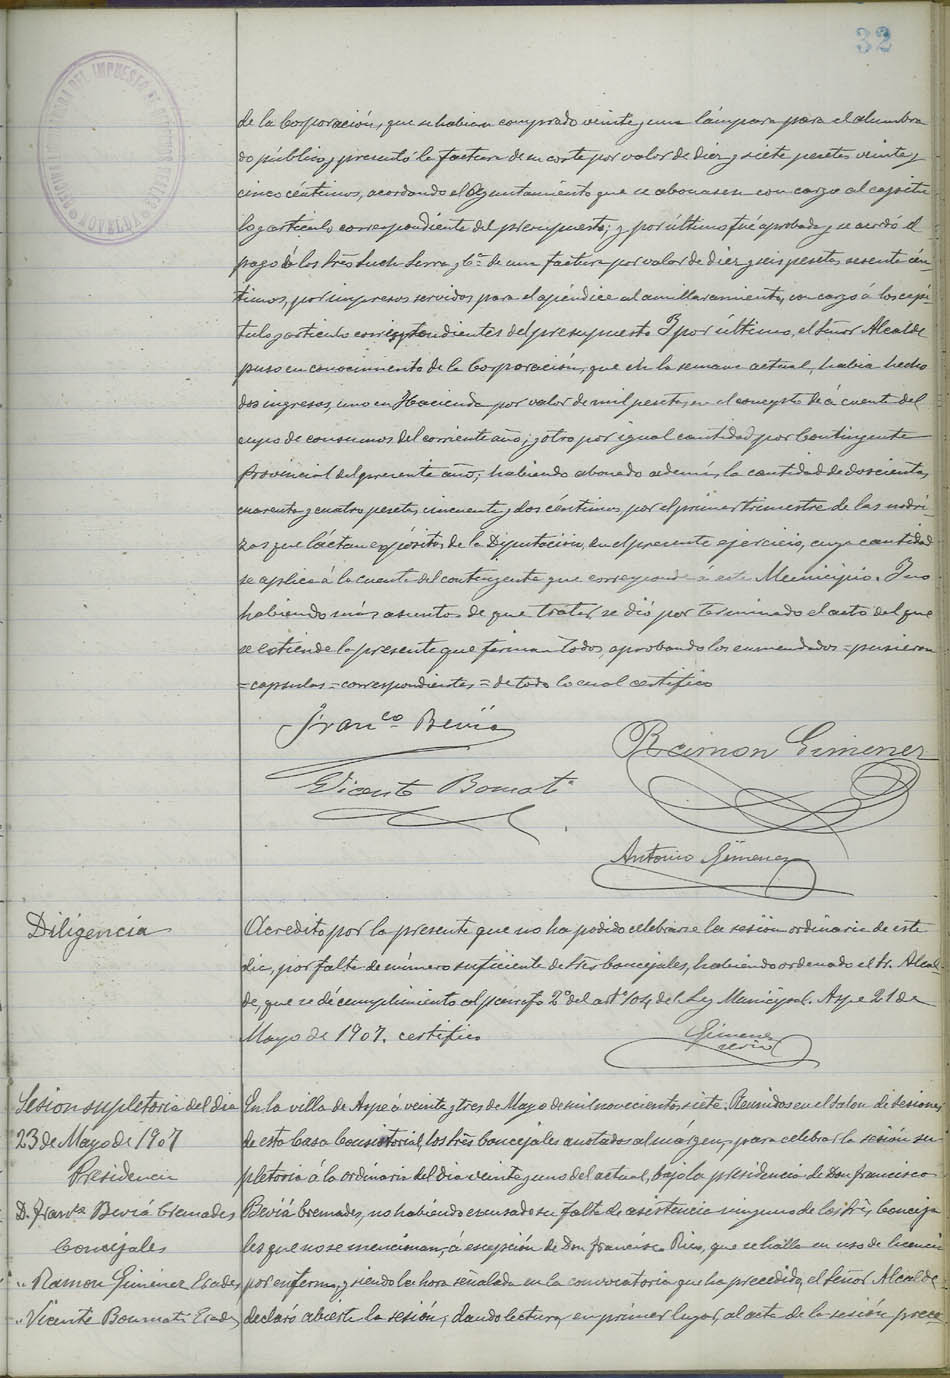 32
de la Corporación, que se habian comprado veinte y una lámpara para el alumbra
do público y presentó la factura de su coste por valor de diez y siete pesetas veinte y
cinco céntimos, acordando el Ayuntamiento que se abonasen con cargo al capítu
lo y artículo correspondiente del presupuesto; y por último fué aprobada y se acordó el
pago á los Srs. Such Serra y Cª de una factura por valor de diez y seis pesetas sesenta cén-
timos, por impresos servidos para el apéndice al amillaramiento, con cargo á los capí-
tulo y artículo correspondientes del presupuesto. Y por último, el Señor Alcalde
puso en conocimiento de la Corporación, que en la semana actual, habia hecho
dos ingresos, uno en Hacienda por valor de mil pesetas, en el concepto de á cuenta del
cupo de consumos del corriente año; y otro por igual cantidad por Contingente
Provincial del presente año; habiendo abonado además, la cantidad de doscientas
cuarenta y cuatro pesetas cincuenta y dos céntimos, por el primer trimestre de las nodri-
zas que lactan expósitos de la Diputación, en el presente ejercicio, cuya cantidad
se aplica á la cuenta del contingente que corresponde á este Municipio. Y no
habiendo más asuntos de que tratar, se dió por terminado el acto del que
se extiende la presente que firman todos, aprobando los enmendados = pusieron
= capsulas = correspondientes = de todo lo cual certifico
Franco Beviá
Ramon Gimenez
Vicente Bomati
Antonio Gimenez
Diligencia
Acredito por la presente que no ha podido celebrarse la sesión ordinaria de este
dia, por falta de número suficiente de Srs. Concejales, habiendo ordenado el Sr. Alcal-
de, que se dé cumplimiento al párrafo 2º del artº 104 de la Ley Municipal. Aspe 21 de
Mayo de 1907. certifico
Gimenez
srio
Sesion supletoria del dia
23 de Mayo de 1907
Presidencia
D. Franco Beviá Cremades
Concejales
" Ramon Gimenez
" Vicente Bomati
En la villa de Aspe á veinte y tres de Mayo de mil novecientos siete. Reunidos en el salon de sesiones
de esta Casa Consistorial, los Srs. Concejales anotados al márgen, para celebrar la sesión su
pletoria á la ordinaria del dia veinte y uno del actual, bajo la presidencia de Don Francisco
Beviá Cremades, no habiendo escusado su falta de asistencia ninguno de los Srs. Conceja
les que no se mencionan, á escepción de Don Francisco Rico, que se halla en uso de licencia
por enfermo, y siendo la hora señalada en la convocatoria que ha precedido, el Señor Alcalde
declaró abierta la sesión, dando lectura, en primer lugar, al acta de la sesión prece-